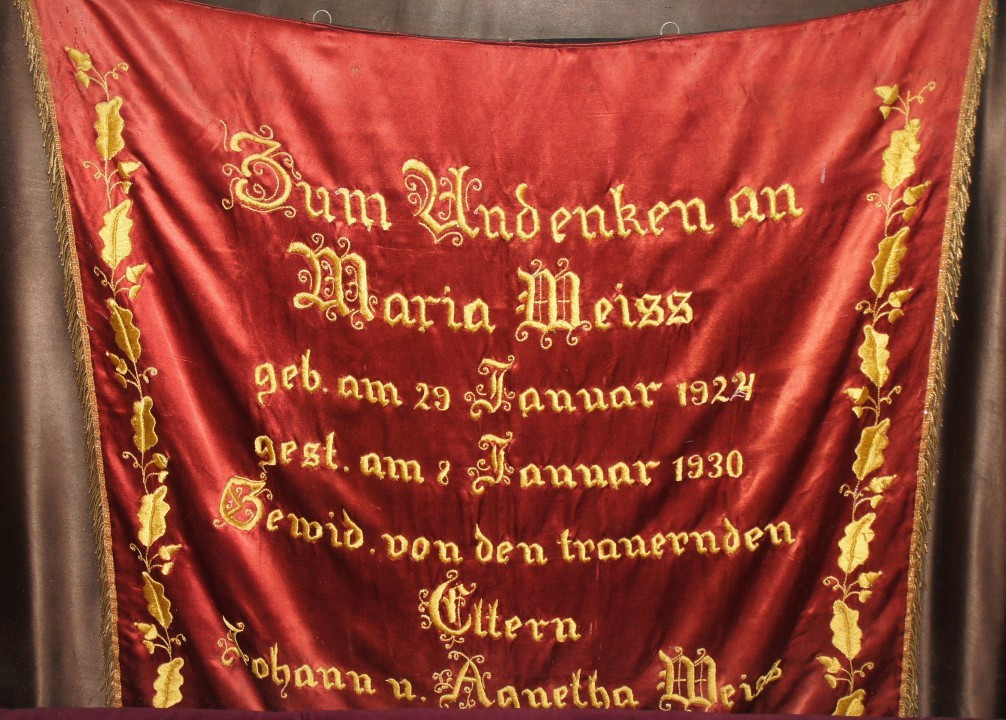 Zum Andenken an
Maria Weiss
geb. am 29 Januar 1924
gest. am 8 Januar 1930
Gewid. von den trauernden
Eltern
Johann u. Agnetha Weiss